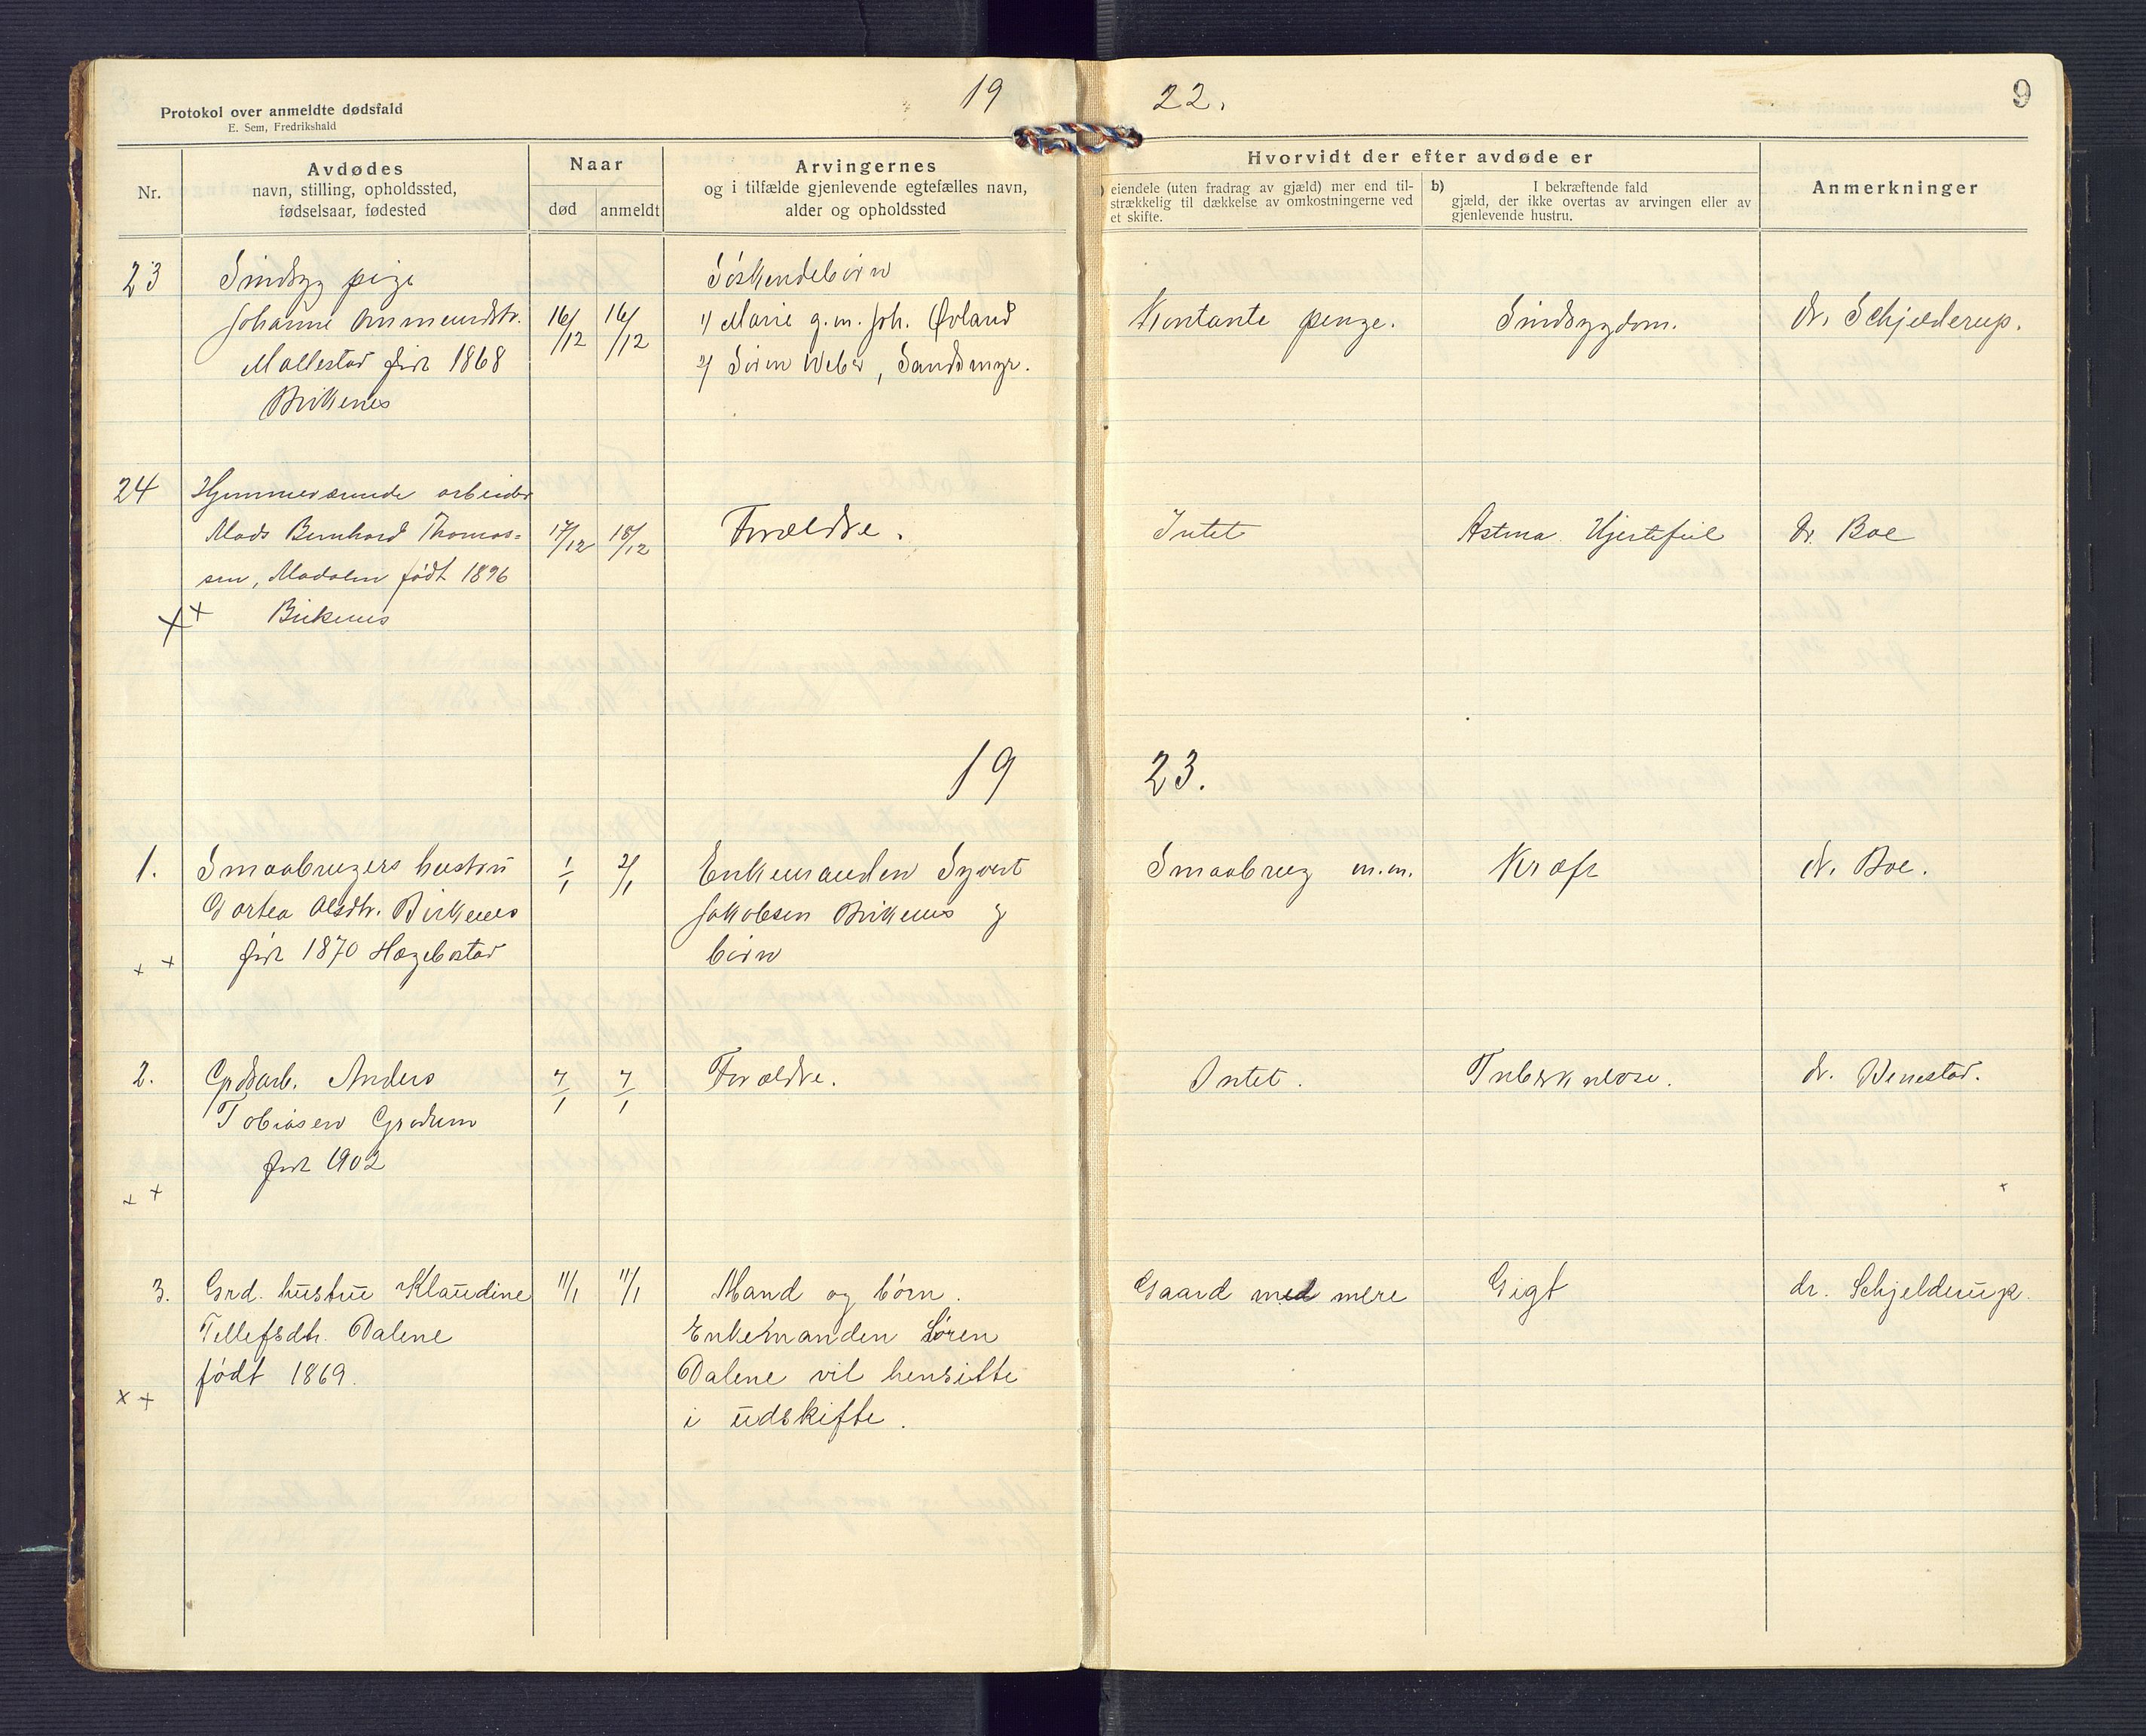 19 22. 9
Protokol over anmeldte dødsfald
E. Sem, Fredrikshald
Nr.
Avdødes
navn, stilling, opholdssted,
fødselsaar, fødested
Naar
død anmeldt
Arvingernes
og i tilfælde gjenlevende egtefælles navn,
alder og opholdssted
Hvorvidt der efter avdøde er
) eiendele (uten fradrag av gjæld) mer end til-
strækkelig til dækkelse av omkostningerne ved
et skifte.
b) I bekræftende fald
gjæld, der ikke overtas av arvingen eller av
gjenlevende hustru.
Anmerkninger
23 Sindsyg pige
Johanne Ommundsdtr.
Mollestad født 1868
Birkenes
16/12 16/12
Søskendebørn
1) Marie g.m. Joh. Øvland
2) Søren Weber, Sandsmyr.
Kontante penge. Sindsygdom. dr. Schjelderup.
24 Hjemmeværende arbeider
Mads Bernhard Thomas=
sen, Modalen født 1896
x + Birkenes
17/12 18/12
Forældre.
Intet Astma Hjertefeil dr. Boe
19 23.
1. Smaabrugers hustru
Dortea Olsdtr. Birkenes
født 1870 Hægebostad
+ +
1/1 2/1
Enkemanden Syvert
Jakobsen Birkenes og
børn
Smaabrug m.m. Kræft dr. Boe.
2. Grdsarb. Anders
Tobiasen Grødum
født 1902
+ +
7/1 7/1
Forældre.
Intet. Tuberkulose. dr. Venestad.
3. Grd. hustru Klaudine
Tellefsdtr. Dalene
født 1869.
x +
11/1 11/1
Mand og børn.
Enkemanden Søren
Dalene vil hensitte
i udskifte.
Gaard med mere Gigt dr. Schjelderup.